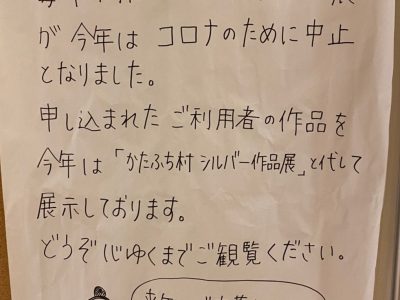 が今年は コロナのために中止
となりました。
申し込まれた ご利用者の作品を
今年は「かたふち村 シルバー作品展」と代して
展示しております。
どうぞ心ゆくまでご観覧ください。